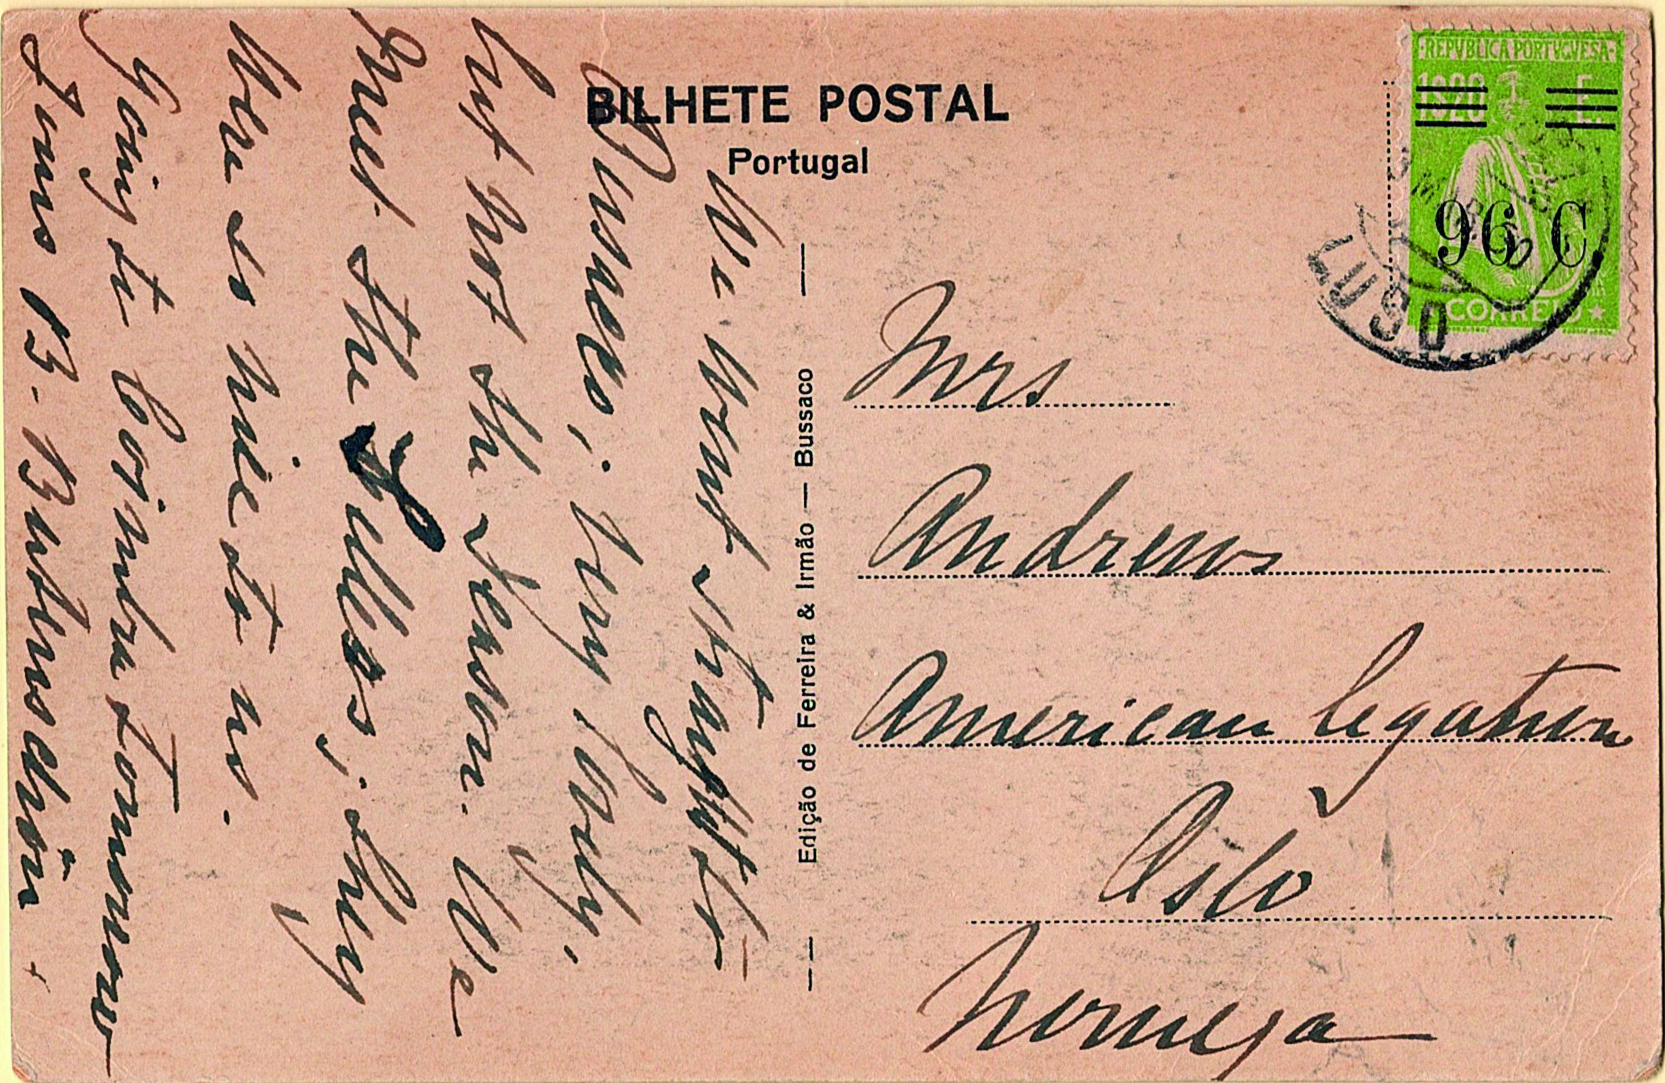 BILHETE POSTAL
Portugal
REPVBLICA PORTVGVESA
1$20 E.
96 C
CORREIO
LUSO
Edição de Ferreira & Irmão — Bussaco
We went straight to
Bussaco, very lovely,
but not the season. We
met the
they
were so nice to us.
Going to Coimbra tomorrow
Mrs
Andrews
American legation
Oslo
Noruega